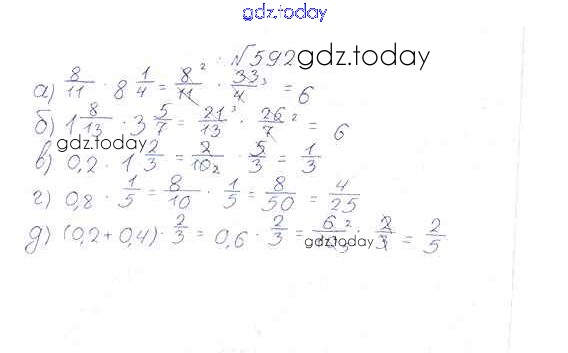 gdz.today
№592 gdz.today
а) 8/11 · 8 1/4 = 8/11 ² · 33/4 ³ = 6
б) 1 8/13 · 3 5/7 = 21/13 ³ · 26/7 ² = 6
gdz.today
в) 0,2 · 1 2/3 = 2/10 ₂ · 5/3 = 1/3
г) 0,8 · 1/5 = 8/10 · 1/5 = 8/50 = 4/25
д) (0,2+0,4) · 2/3 = 0,6 · 2/3 = 6/10 ² ₅ · 2/3 = 2/5
gdz.today